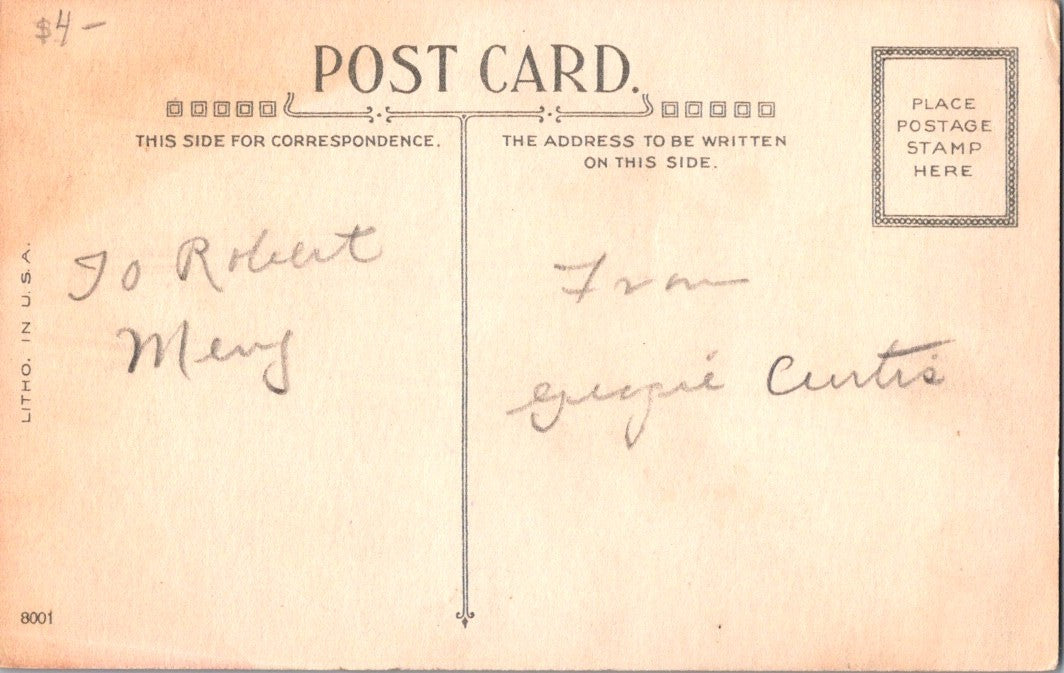 $4-
POST CARD.
THIS SIDE FOR CORRESPONDENCE.
THE ADDRESS TO BE WRITTEN
ON THIS SIDE.
PLACE
POSTAGE
STAMP
HERE
LITHO. IN U.S.A.
To Robert
From
Curtis
8001